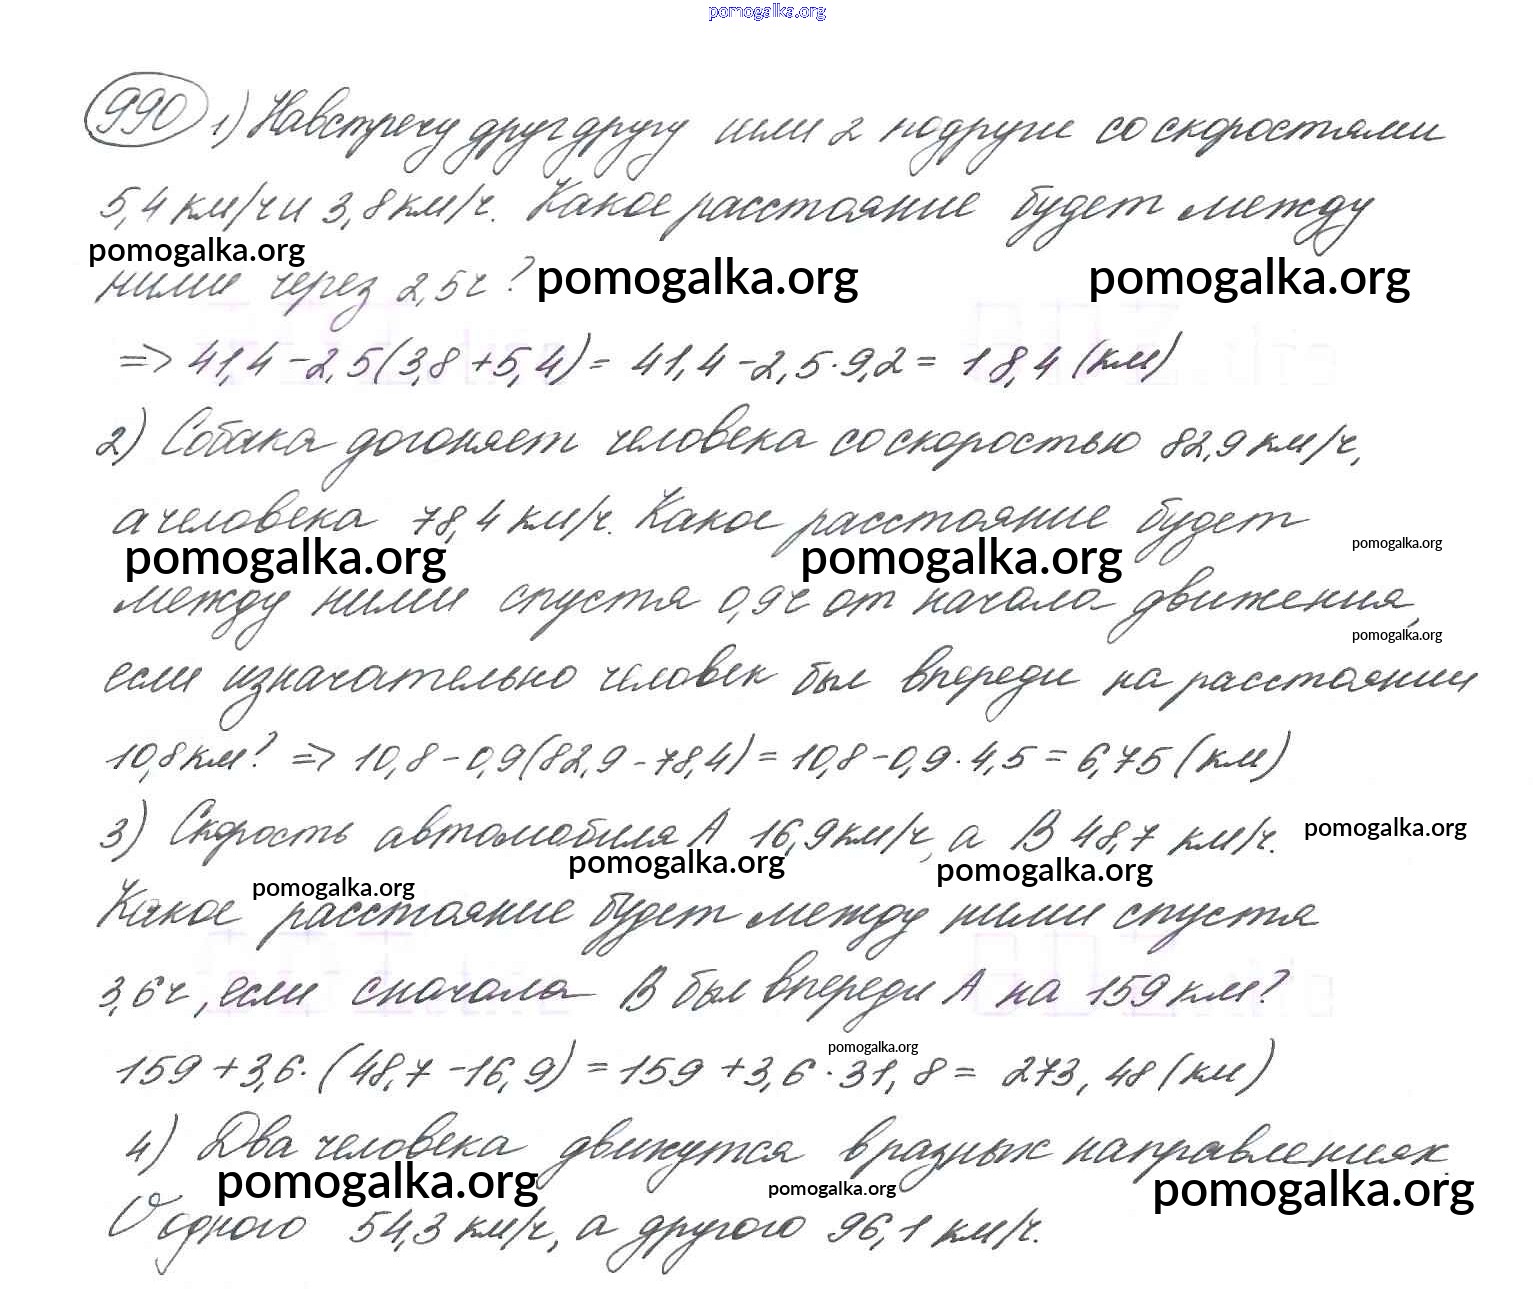 pomogalka.org
990 1) Навстречу друг другу шли 2 подруги со скоростями
5,4 км/ч и 3,8 км/ч. Какое расстояние будет между
pomogalka.org
ними через 2,5 ч ?
pomogalka.org pomogalka.org
=> 41,4 - 2,5 (3,8 + 5,4) = 41,4 - 2,5 · 9,2 = 18,4 (км)
2) Собака догоняет человека со скоростью 82,9 км/ч,
а человека 78,4 км/ч. Какое расстояние будет
pomogalka.org pomogalka.org pomogalka.org
между ними спустя 0,9 ч от начала движения,
pomogalka.org
если изначательно человек был впереди на расстоянии
10,8 км? => 10,8 - 0,9 (82,9 - 78,4) = 10,8 - 0,9 · 4,5 = 6,75 (км)
3) Скорость автомобиля А 16,9 км/ч, а В 48,7 км/ч.
pomogalka.org
pomogalka.org pomogalka.org
pomogalka.org
Какое расстояние будет между ними спустя
3,6 ч, если сначала В был впереди А на 159 км?
pomogalka.org
159 + 3,6 · (48,7 - 16,9) = 159 + 3,6 · 31,8 = 273,48 (км)
4) Два человека движутся в разных направлениях.
pomogalka.org pomogalka.org pomogalka.org
У одного 54,3 км/ч, а другого 96,1 км/ч.